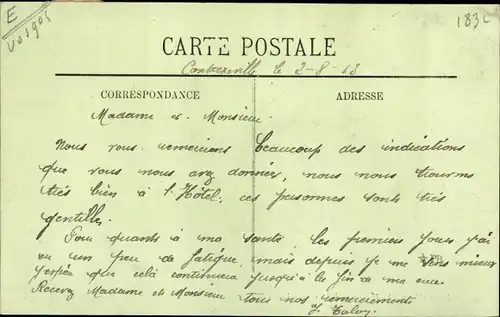 E
Vosges
183c
CARTE POSTALE
Contrexeville le 2-8-13
CORRESPONDANCE
ADRESSE
Madame et Monsieur
Nous vous remercions beaucoup des indications
que vous nous avez données, nous nous trouvons
très bien à l'Hôtel, ces personnes sont très
gentilles.
Pour quants à ma santé les premiers jours j'ai
eu un peu de fatigue, mais depuis je me sens mieux
j'espère que celà continuera jusqu'à la fin de ma cure
Recevez Madame et Monsieur tous nos remerciements